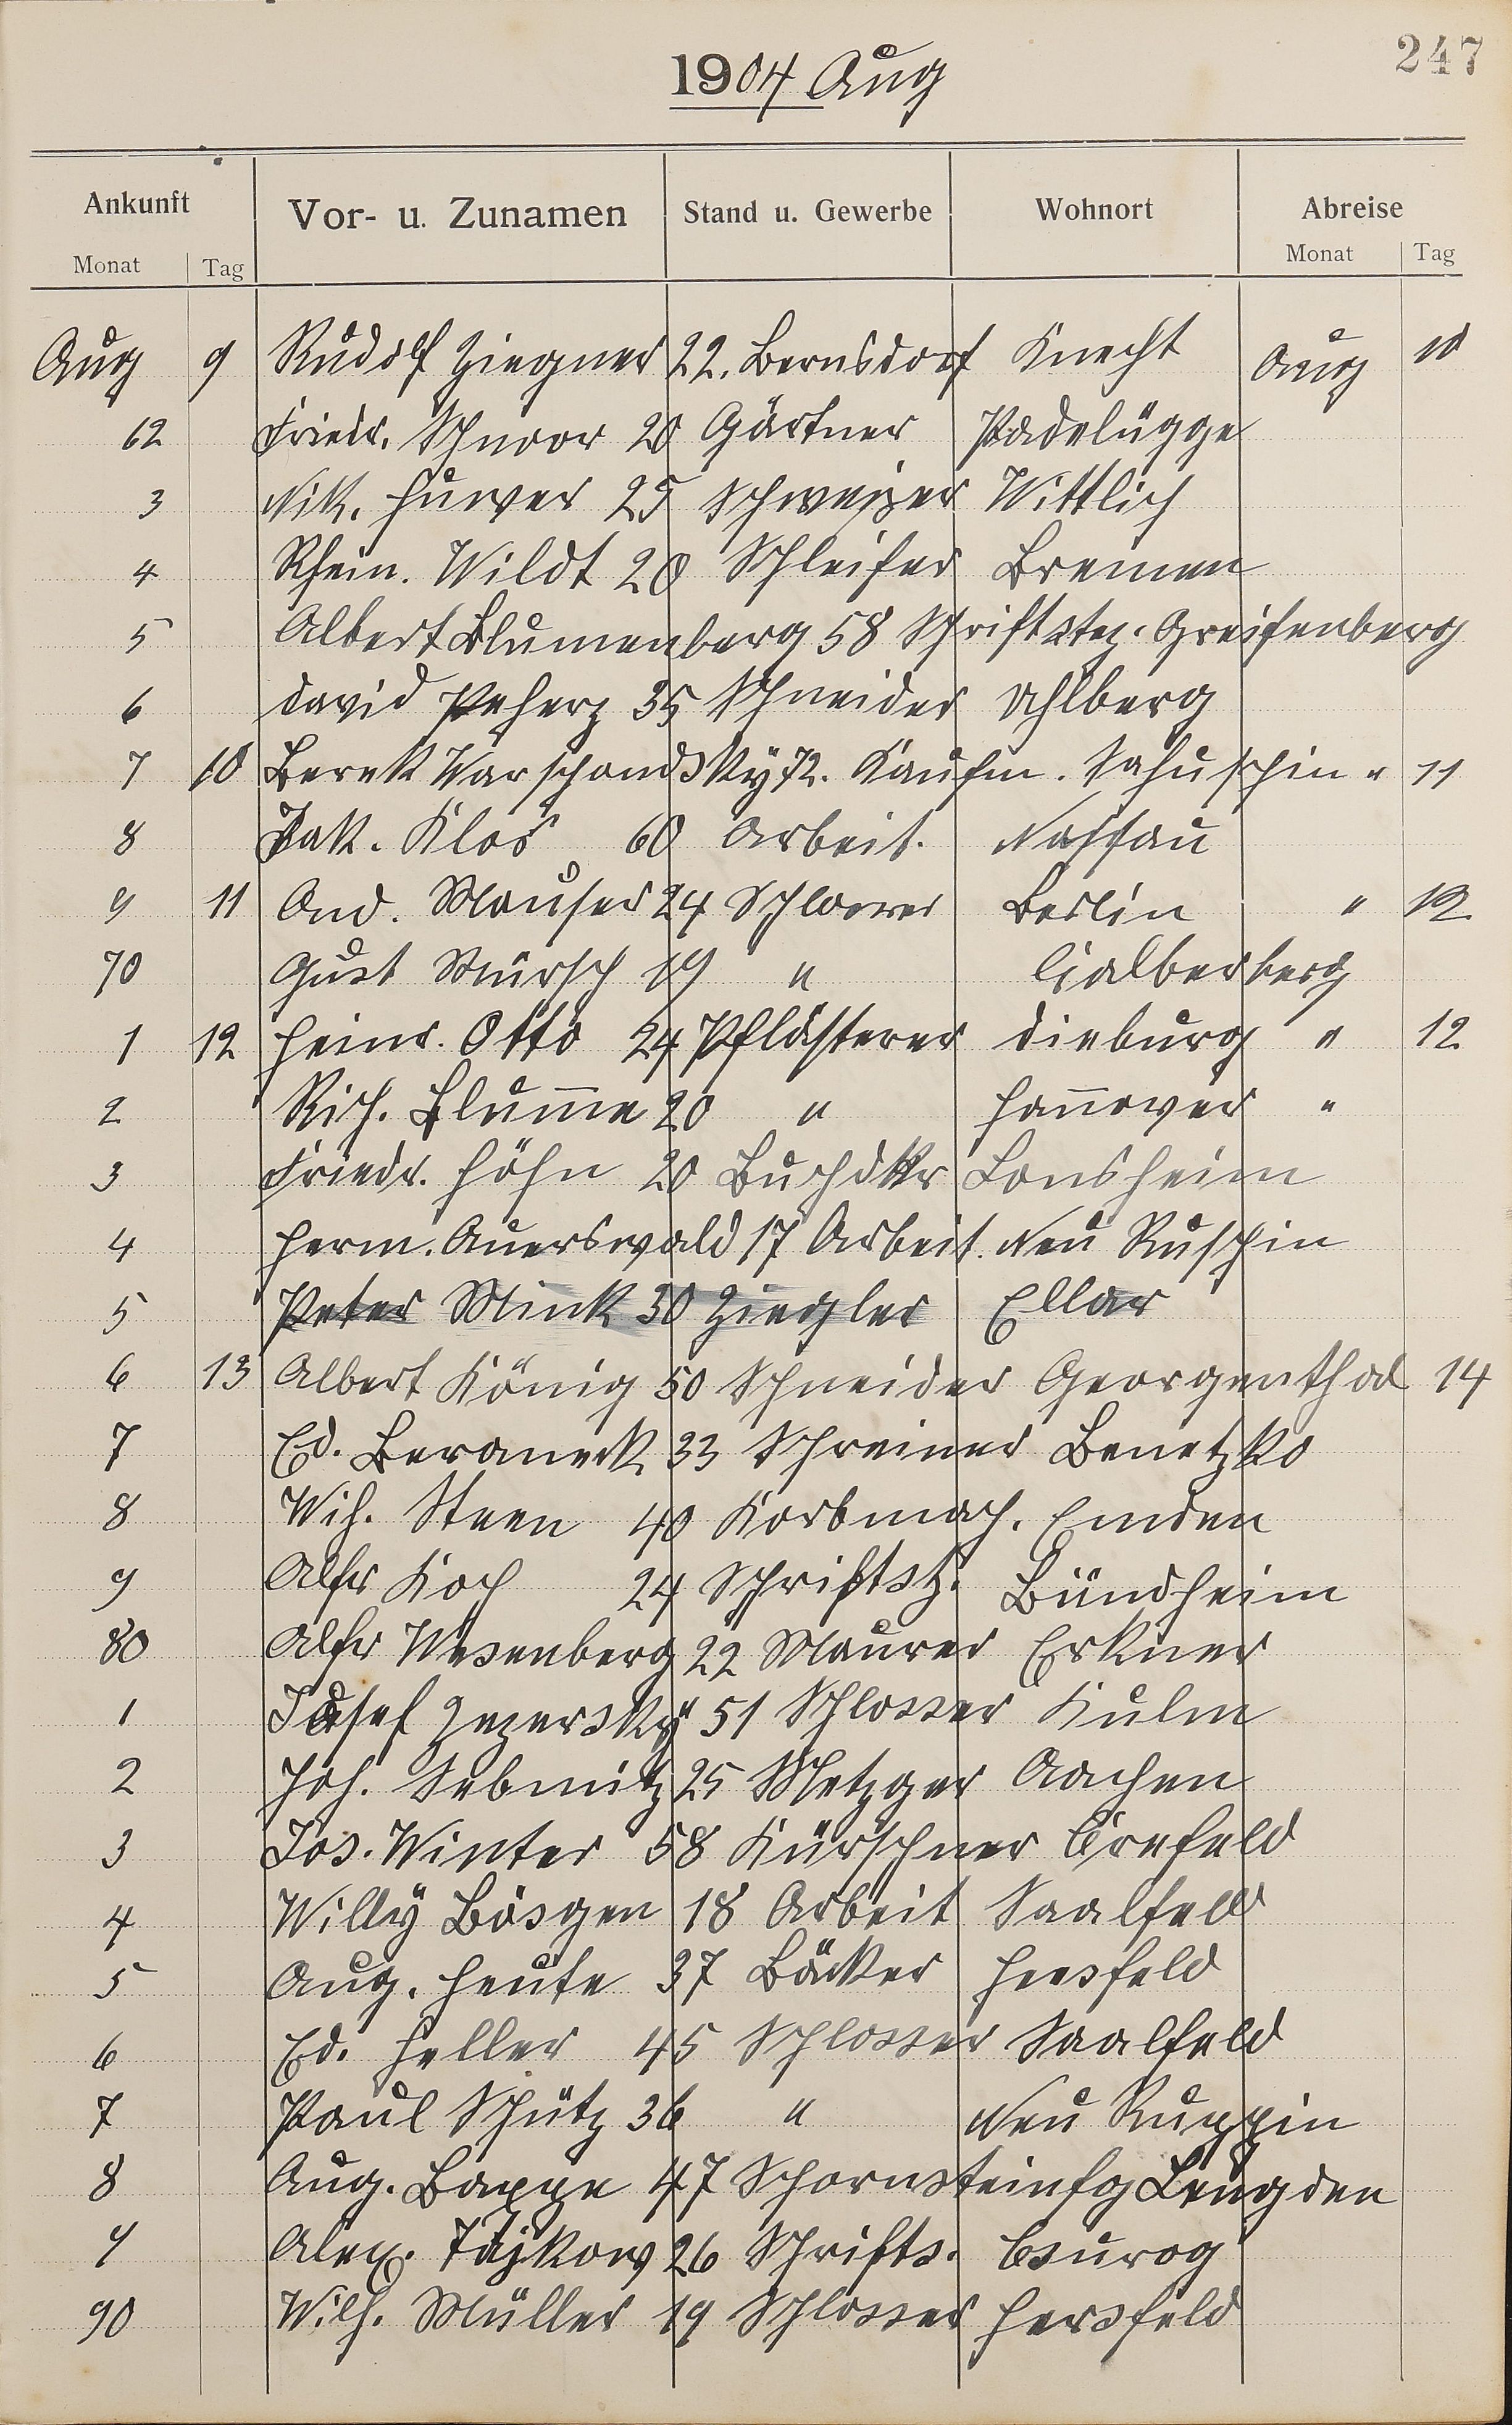 247
1904 Aug
Ankunft Vor- u. Zunamen Stand u. Gewerbe Wohnort Abreise
Monat Tag Monat Tag
Aug 9 Rudolf Ziegner 22. Bernsdorf Knecht Aug 10
62 Friedr. Schnoor 20 Gärtner Padelügge
3 Nik. Huwer 25 Schweizer Wittlich
4 Rhein. Wildt 20 Schleifer Bremen
5 Albert Blumenberg 58 Schriftstz. Greifenberg
6 David 35 Schneider Ahlberg
7 10 Berek 72. Kaufm. " 11
8 Jak. Klos 60 Arbeit. Nassau
9 11 And. Mauser 24 Schlosser Berlin " 12
70 Gust Mürsch 19 "
1 12 Heinr. Otto 24 Pflästerer Dieburg " 12
2 Rich. Blume 20 " Hannover "
3 Friedr. Höhn 20 Buchdkr Lonsheim
4 Herm. Auerswald 17 Arbeit. Neu Ruppin
5 Peter Mink 30 Ziegler Ellar
6 13 Albert König 50 Schneider Georgenthal 14
7 Ed. Beranek 33 Schreiner Benetzko
8 Wih. Steen 40 Korbmach. Emden
9 Alfr Koch 24 Schriftstz. Bündheim
80 Alfr Wesenberg 22 Maurer Erkner
1 Josef Jezersky 51 Schlosser Kulm
2 Joh. Sebmitz 25 Metzger Aachen
3 Jos. Winter 58 Kürschner Crefeld
4 Willy Bösgen 18 Arbeit Saalfeld
5 Aug. Heute 37 Bäcker Hersfeld
6 Ed. Heller 45 Schlosser Saalfeld
7 Paul Schütz 36 " Neu Ruppin
8 Aug. Bappe 47 Schornsteinfg Lengden
9 Alex. 26 Schrifts.
90 Wilh. Müller 19 Schlosser Hersfeld